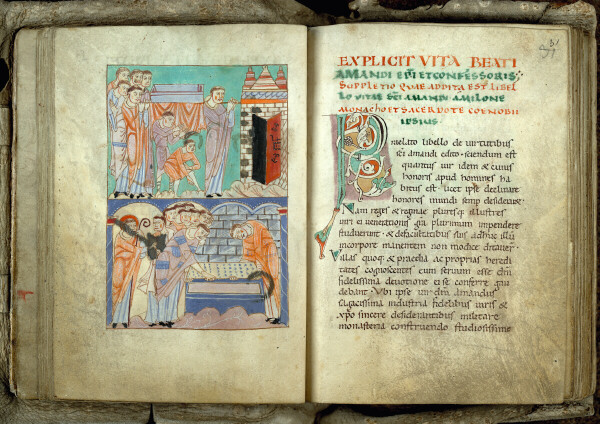 EXPLICIT VITA BEATI
AMANDI EPI ET CONFESSORIS;
SUPPLETIO QUAE ADDITA EST LIBEL
LO VITAE SCI AMANDI A MILONE
MONACHO ET SACERDOTE COENOBII
IPSIUS
Prelato libello de uirtutibus
sci amandi edito, sciendum est
quantus uir idem & cuius
honoris apud homines ha
bitus est. licet ipse declinare
honores mundi semp desiderare
Nam reges & reginae pluresq illustres
uiri ei uenerationis plurimum impendere
studuerunt & de facultatibus suis adhuc illū
in corpore manentem non modice ditauer
uillas quoq & praedia ac proprias heredi
tates cognoscentes eum seruum esse dni
fidelissima deuotione ei se conferre gau
debant. Ubi ipse uir dni amandus
sagacissima industria fidelibus uiris &
xpo sincere desiderantibus militare
monasteria construendo studiosissime